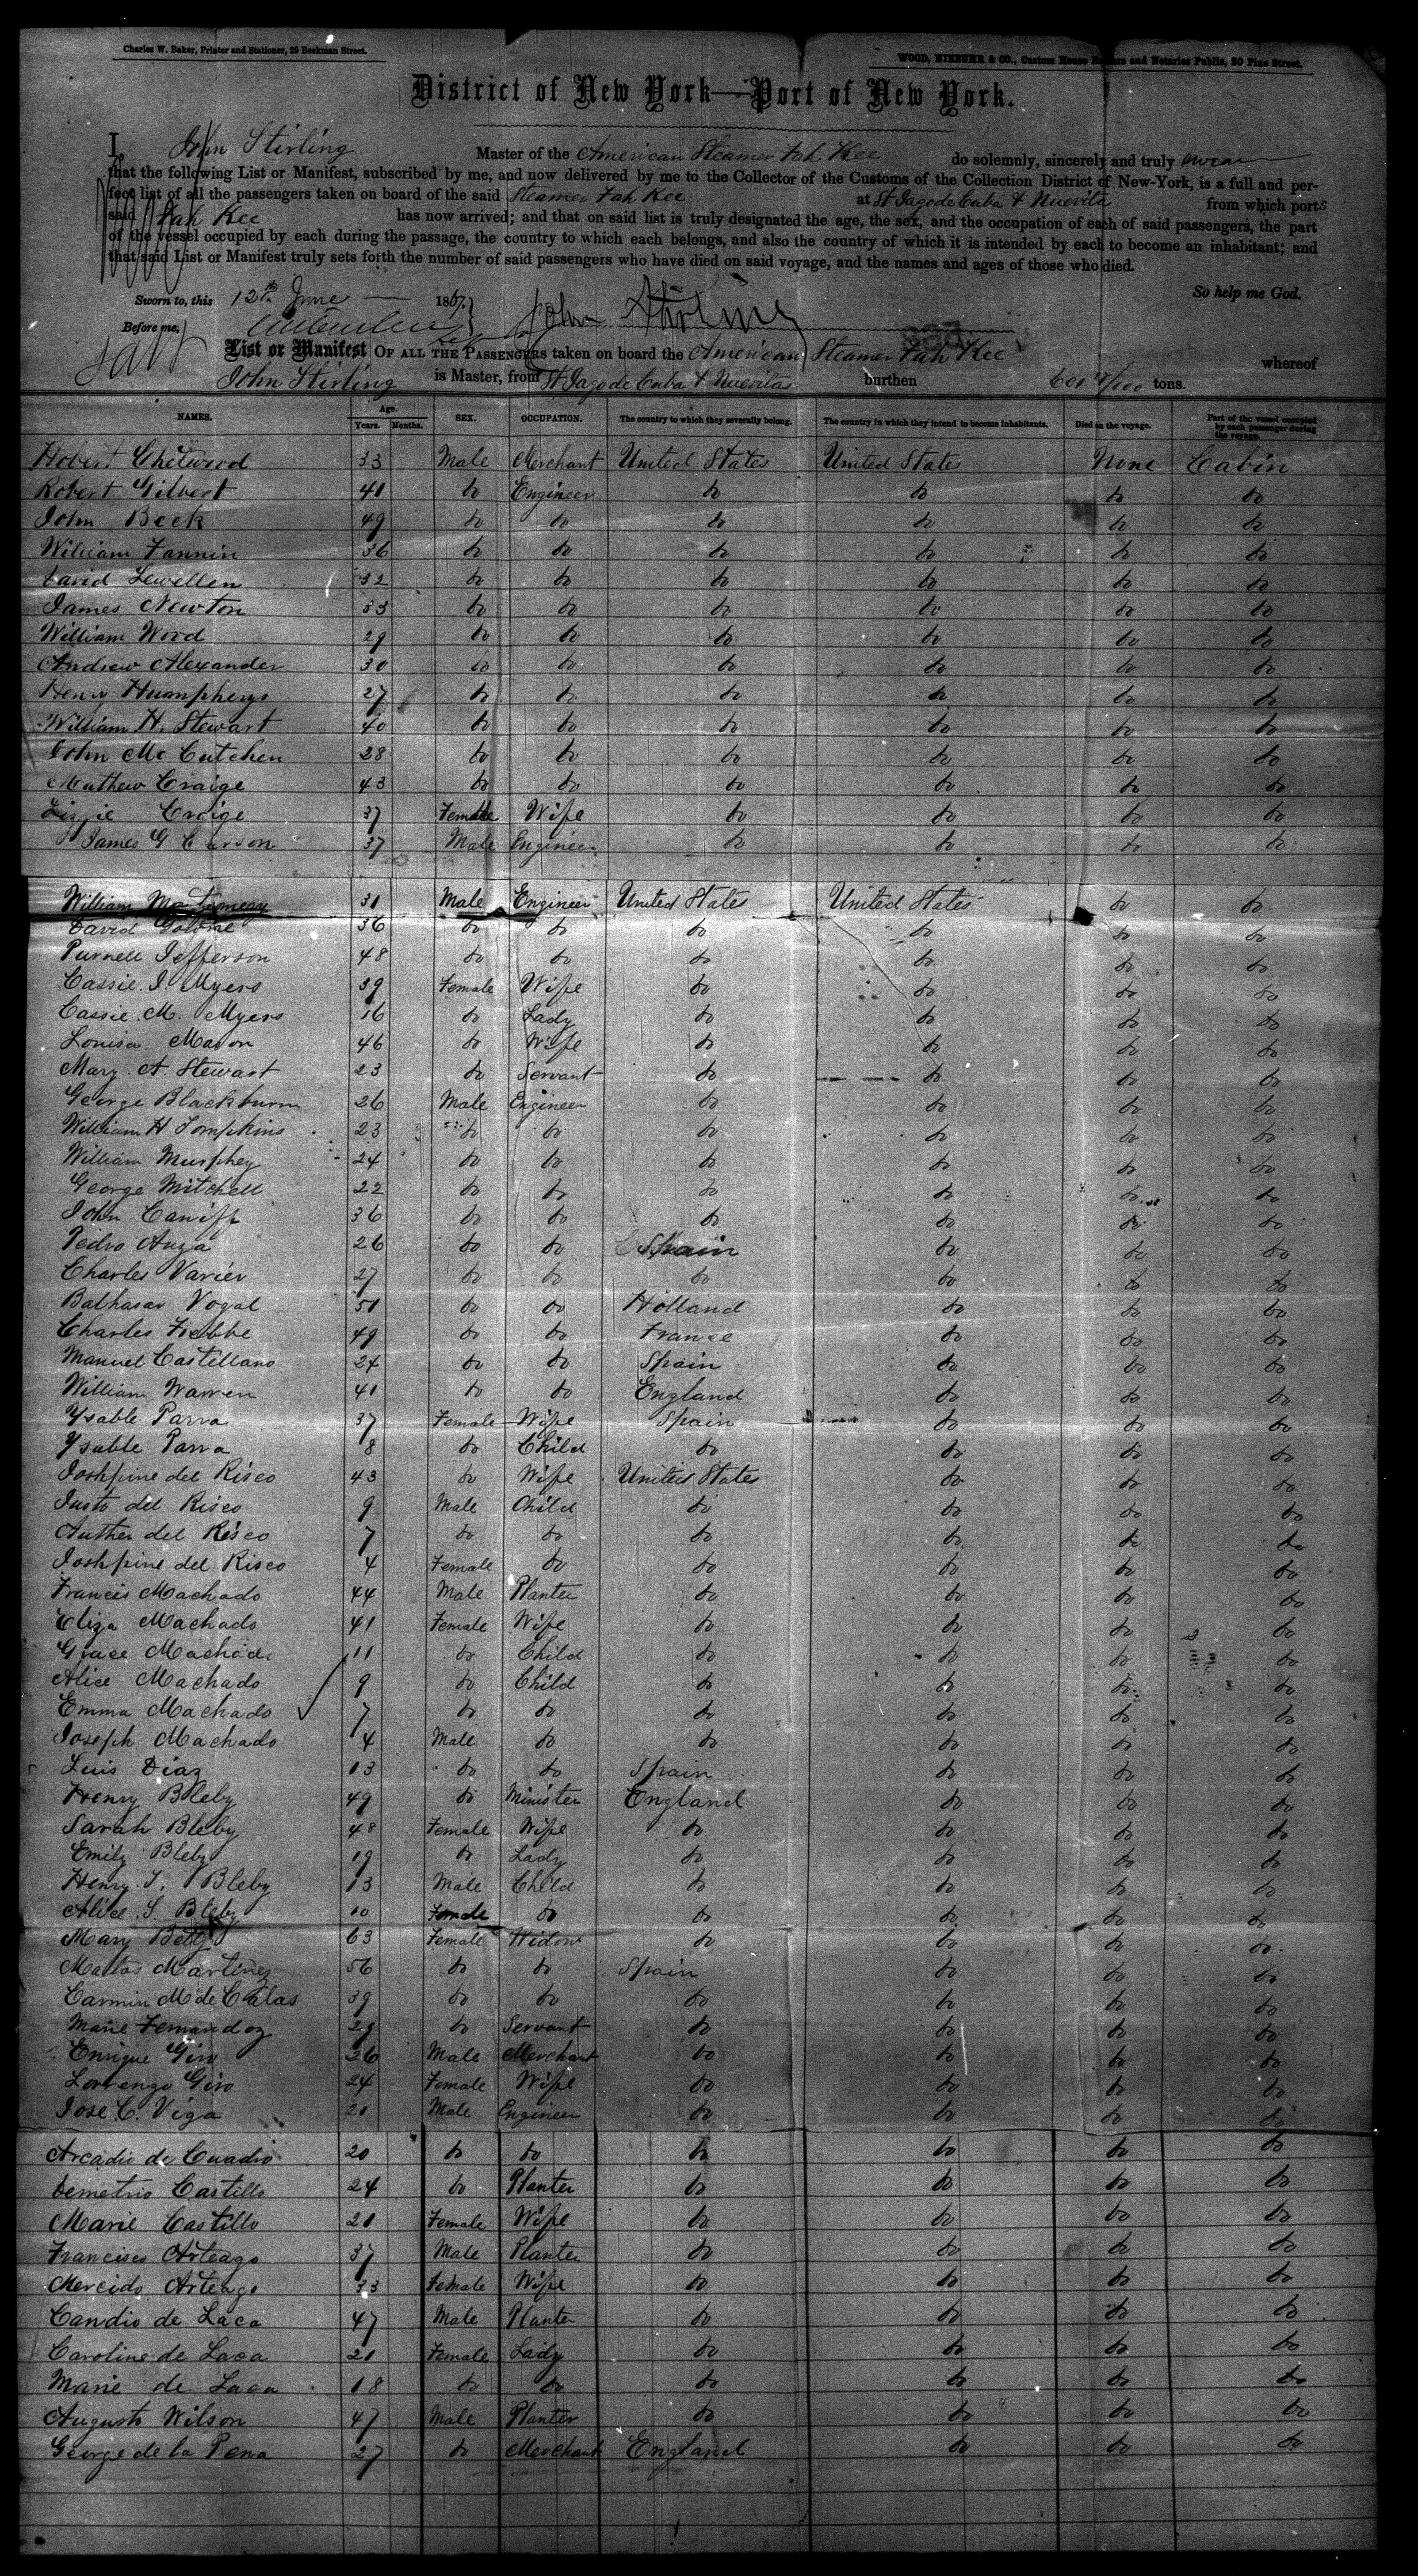 Charles W. Baker, Printer and Stationer, 29 Beekman Street.
WOOD, NIEBUHR & CO., Custom House Brokers and Notaries Public, 20 Pine Street.
District of New York—Port of New York.
I, John Stirling Master of the American Steamer Fah Kee do solemnly, sincerely and truly swear
that the following List or Manifest, subscribed by me, and now delivered by me to the Collector of the Customs of the Collection District of New-York, is a full and per-
fect list of all the passengers taken on board of the said Steamer Fah Kee at St Jago de Cuba & Nuevita from which ports
said Fah Kee has now arrived; and that on said list is truly designated the age, the sex, and the occupation of each of said passengers, the part
of the vessel occupied by each during the passage, the country to which each belongs, and also the country of which it is intended by each to become an inhabitant; and
that said List or Manifest truly sets forth the number of said passengers who have died on said voyage, and the names and ages of those who died.
So help me God.
Sworn to, this 12th June 1867. John Stirling
Before me,
List or Manifest OF ALL THE PASSENGERS taken on board the American Steamer Fah Kee whereof
John Stirling is Master, from St Jago de Cuba & Nuevitas burthen tons.
NAMES. Age. Years. Months. SEX. OCCUPATION. The country to which they severally belong. The country in which they intend to become inhabitants. Died on the voyage. Part of the vessel occupied by each passenger during the voyage.
Robert Chetwood 33 Male Merchant United States United States None Cabin
Robert Gilbert 41 do Engineer do do do do
John Beck 49 do do do do do do
William Fannin 36 do do do do do do
David Lewellen 32 do do do do do do
James Newton 33 do do do do do do
William Wood 29 do do do do do do
Andrew Alexander 30 do do do do do do
Henry Huampherys 27 do do do do do do
William H. Stewart 40 do do do do do do
John McCutchen 28 do do do do do do
Mathew Craige 43 do do do do do do
Lizzie Craige 37 Female Wife do do do do
James G Carson 37 Male Engineer do do do do
William Montgomery 31 Male Engineer United States United States do do
David 36 do do do do do do
Purnell Jefferson 48 do do do do do do
Cassie J. Myers 39 Female Wife do do do do
Cassie M. Myers 16 do Lady do do do do
Louisa Mason 46 do Wife do do do do
Mary A. Stewart 23 do Servant do do do do
George Blackburn 26 Male Engineer do do do do
William H Tompkins 23 do do do do do do
William Murphey 24 do do do do do do
George Mitchell 22 do do do do do do
John Caniff 36 do do do do do do
Pedro Auza 26 do do Spain do do do
Charles Varier 27 do do do do do do
Balthasar Vogal 51 do do Holland do do do
Charles Frebbe 49 do do France do do do
Manuel Castellano 24 do do Spain do do do
William Warren 41 do do England do do do
Ysable Parra 37 Female Wife Spain do do do
Ysable Parra 8 do Child do do do do
Joshpine del Risco 43 do Wife United States do do do
Justo del Risco 9 Male Child do do do do
Auther del Risco 7 do do do do do do
Joshpine del Risco 4 Female do do do do do
Francis Machado 44 Male Planter do do do do
Eliza Machado 41 Female Wife do do do do
Grace Machado 11 do Child do do do do
Alice Machado 9 do Child do do do do
Emma Machado 7 do do do do do do
Joseph Machado 4 Male do do do do do
Luis Diaz 13 do do Spain do do do
Henry Bleby 49 do Minister England do do do
Sarah Bleby 48 Female Wife do do do do
Emily Bleby 19 do Lady do do do do
Henry J. Bleby 13 Male Child do do do do
Alice S. Bleby 10 Female do do do do do
Mary Betty 63 Female Widow do do do do
Matos Martinez 56 do do Spain do do do
Carmin M de Calas 39 do do do do do do
Marie Fernandoz 29 do Servant do do do do
Enrique Giro 26 Male Merchant do do do do
Lorrenzo Giro 24 Female Wife do do do do
Jose C. Viga 21 Male Engineer do do do do
Arcadio de Cuadio 20 do do do do do do
Demetrio Castillo 24 do Planter do do do do
Marie Castillo 21 Female Wife do do do do
Francisco Arteago 37 Male Planter do do do do
Mercido Arteago 33 Female Wife do do do do
Candio de Laca 47 Male Planter do do do do
Caroline de Laca 21 Female Lady do do do do
Marie de Laca 18 do do do do do do
Augusto Wilson 47 Male Planter do do do do
George de la Pena 27 do Merchant England do do do